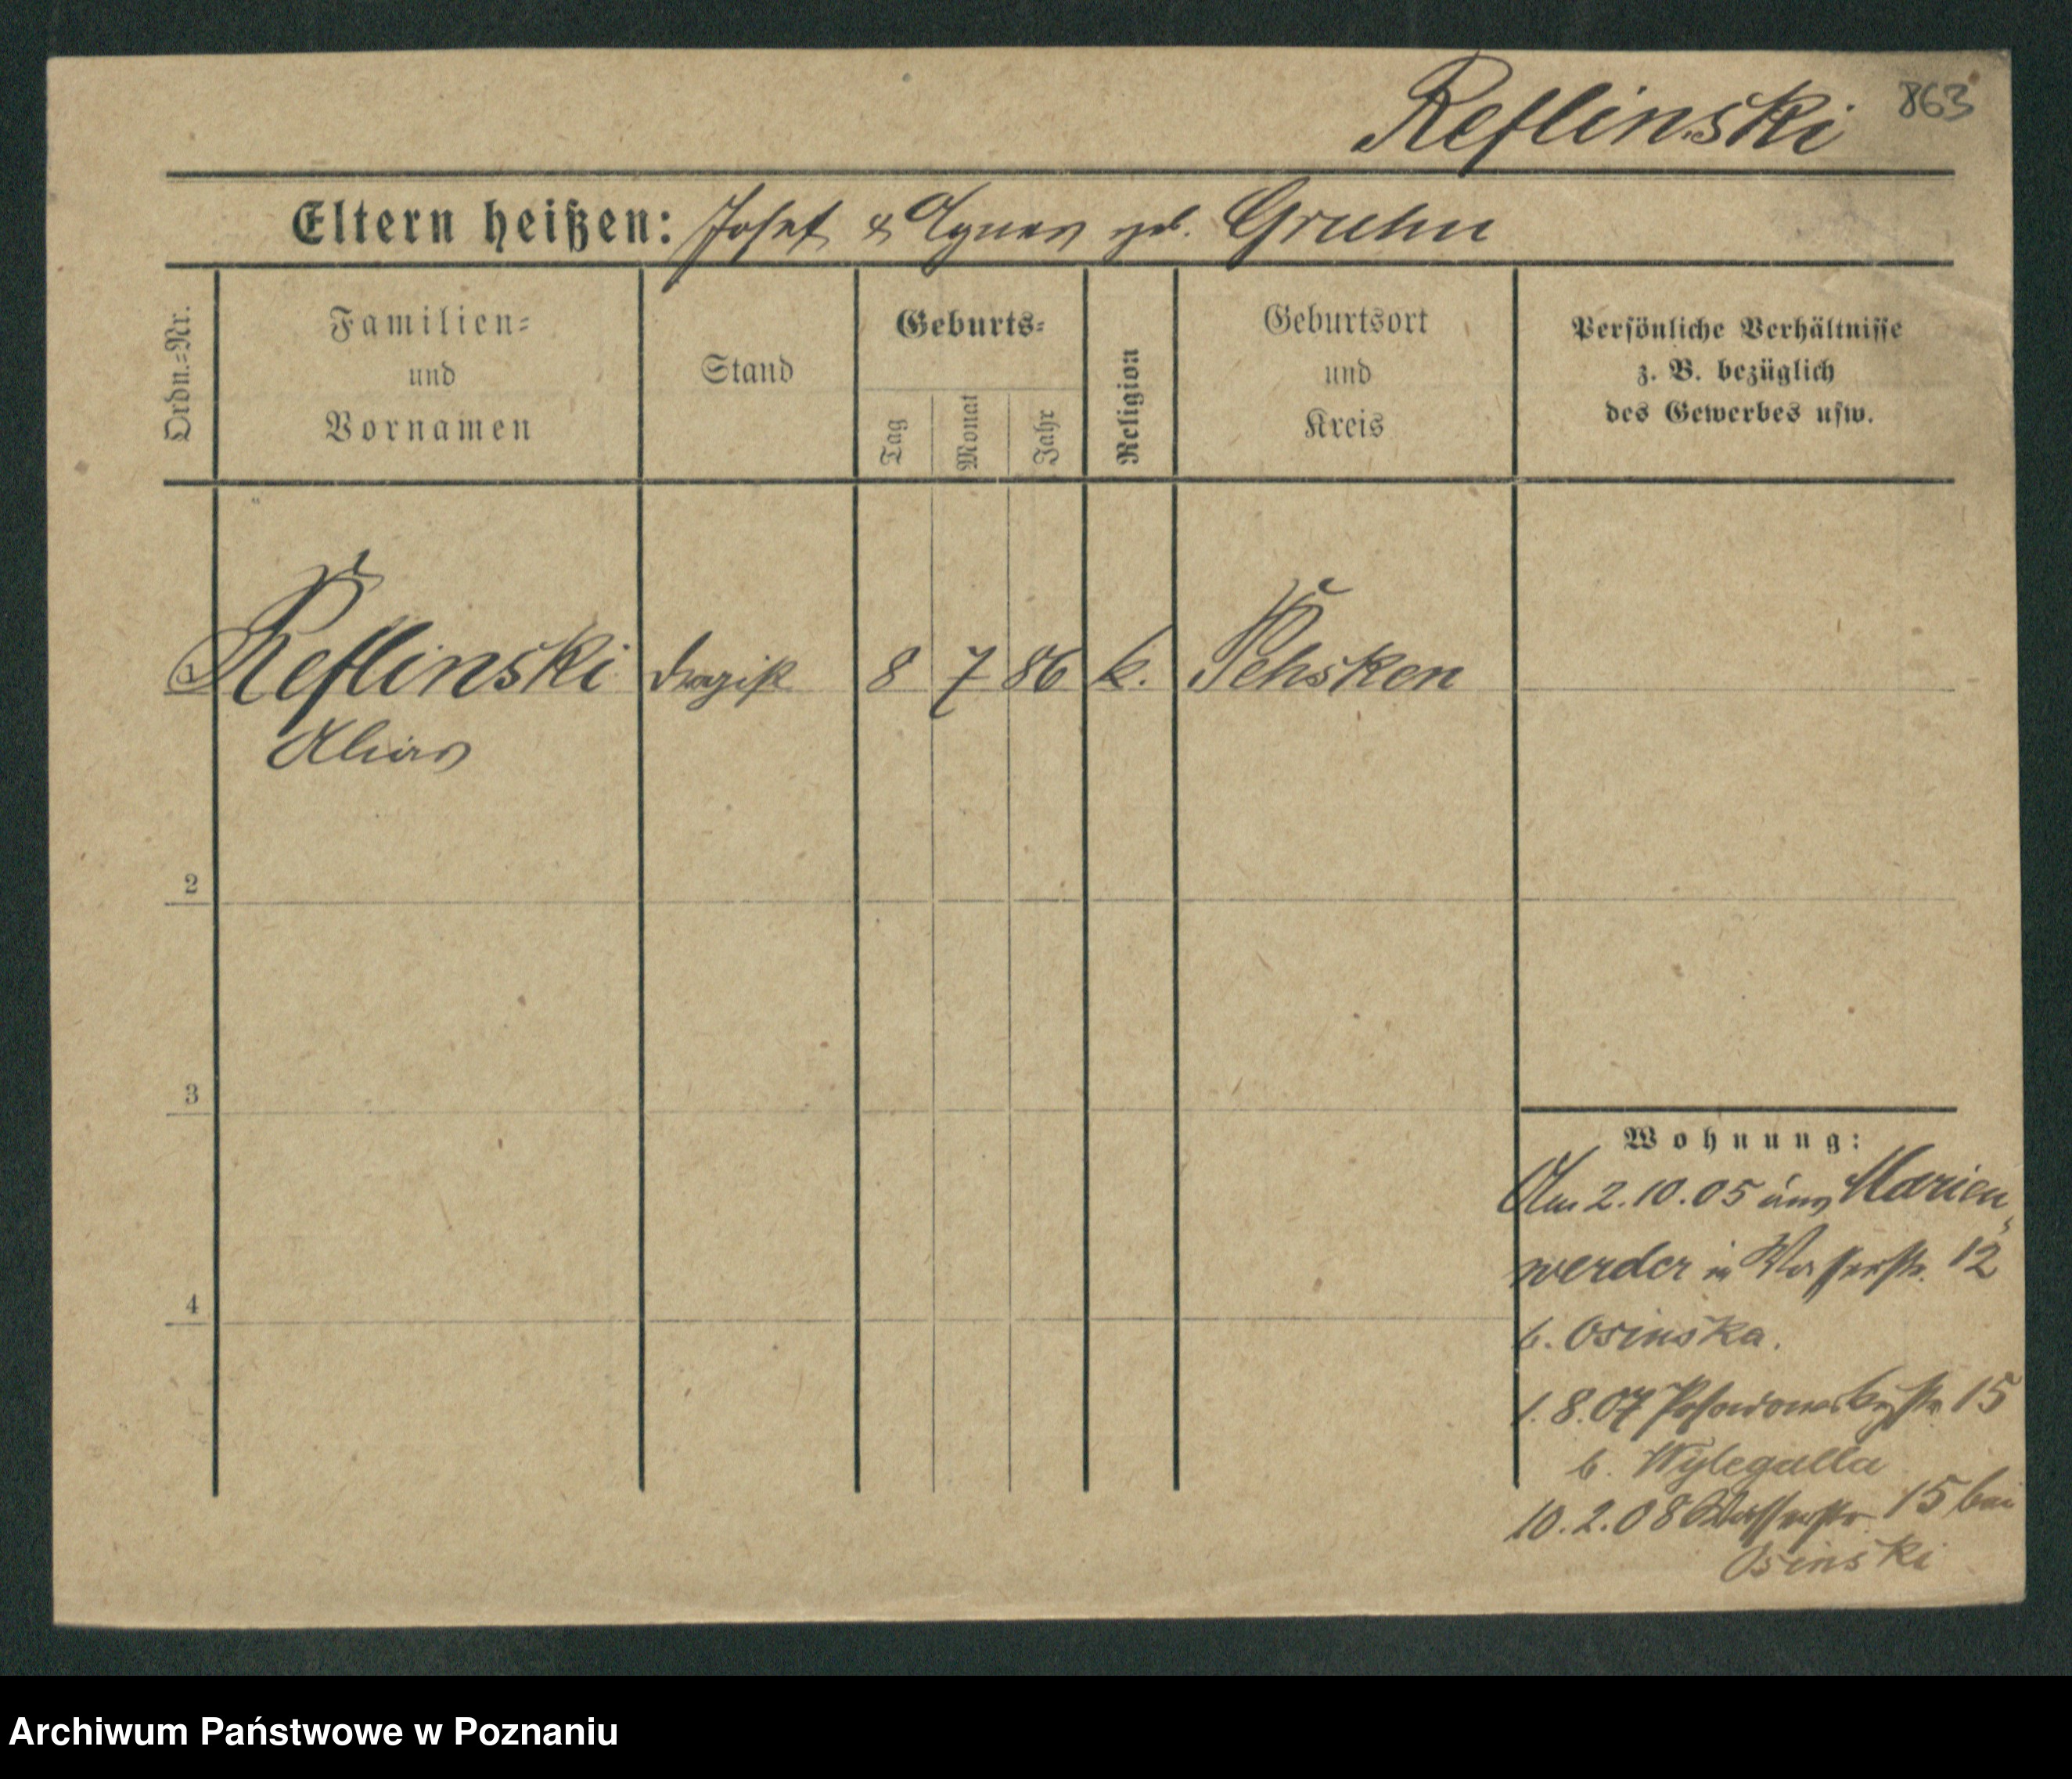 Reflinski 863
Eltern heißen: Josef & Agnes geb. Gruhn
Ordn.=Nr.
Familien=
und
Vornamen
Stand
Geburts=
Tag
Monat
Jahr
Religion
Geburtsort
und
Kreis
Persönliche Verhältnisse
z. B. bezüglich
des Gewerbes usw.
Reflinski 8 7 86 k. Pehsken
2
3
4
Wohnung:
Am 2.10.05 aus Marien
werder in Wasserstr. 12
b. Osinska.
1.8.07 15
b. Wylegalla
10.2.08 Wasserstr. 15 bei
Osinski
Archiwum Państwowe w Poznaniu